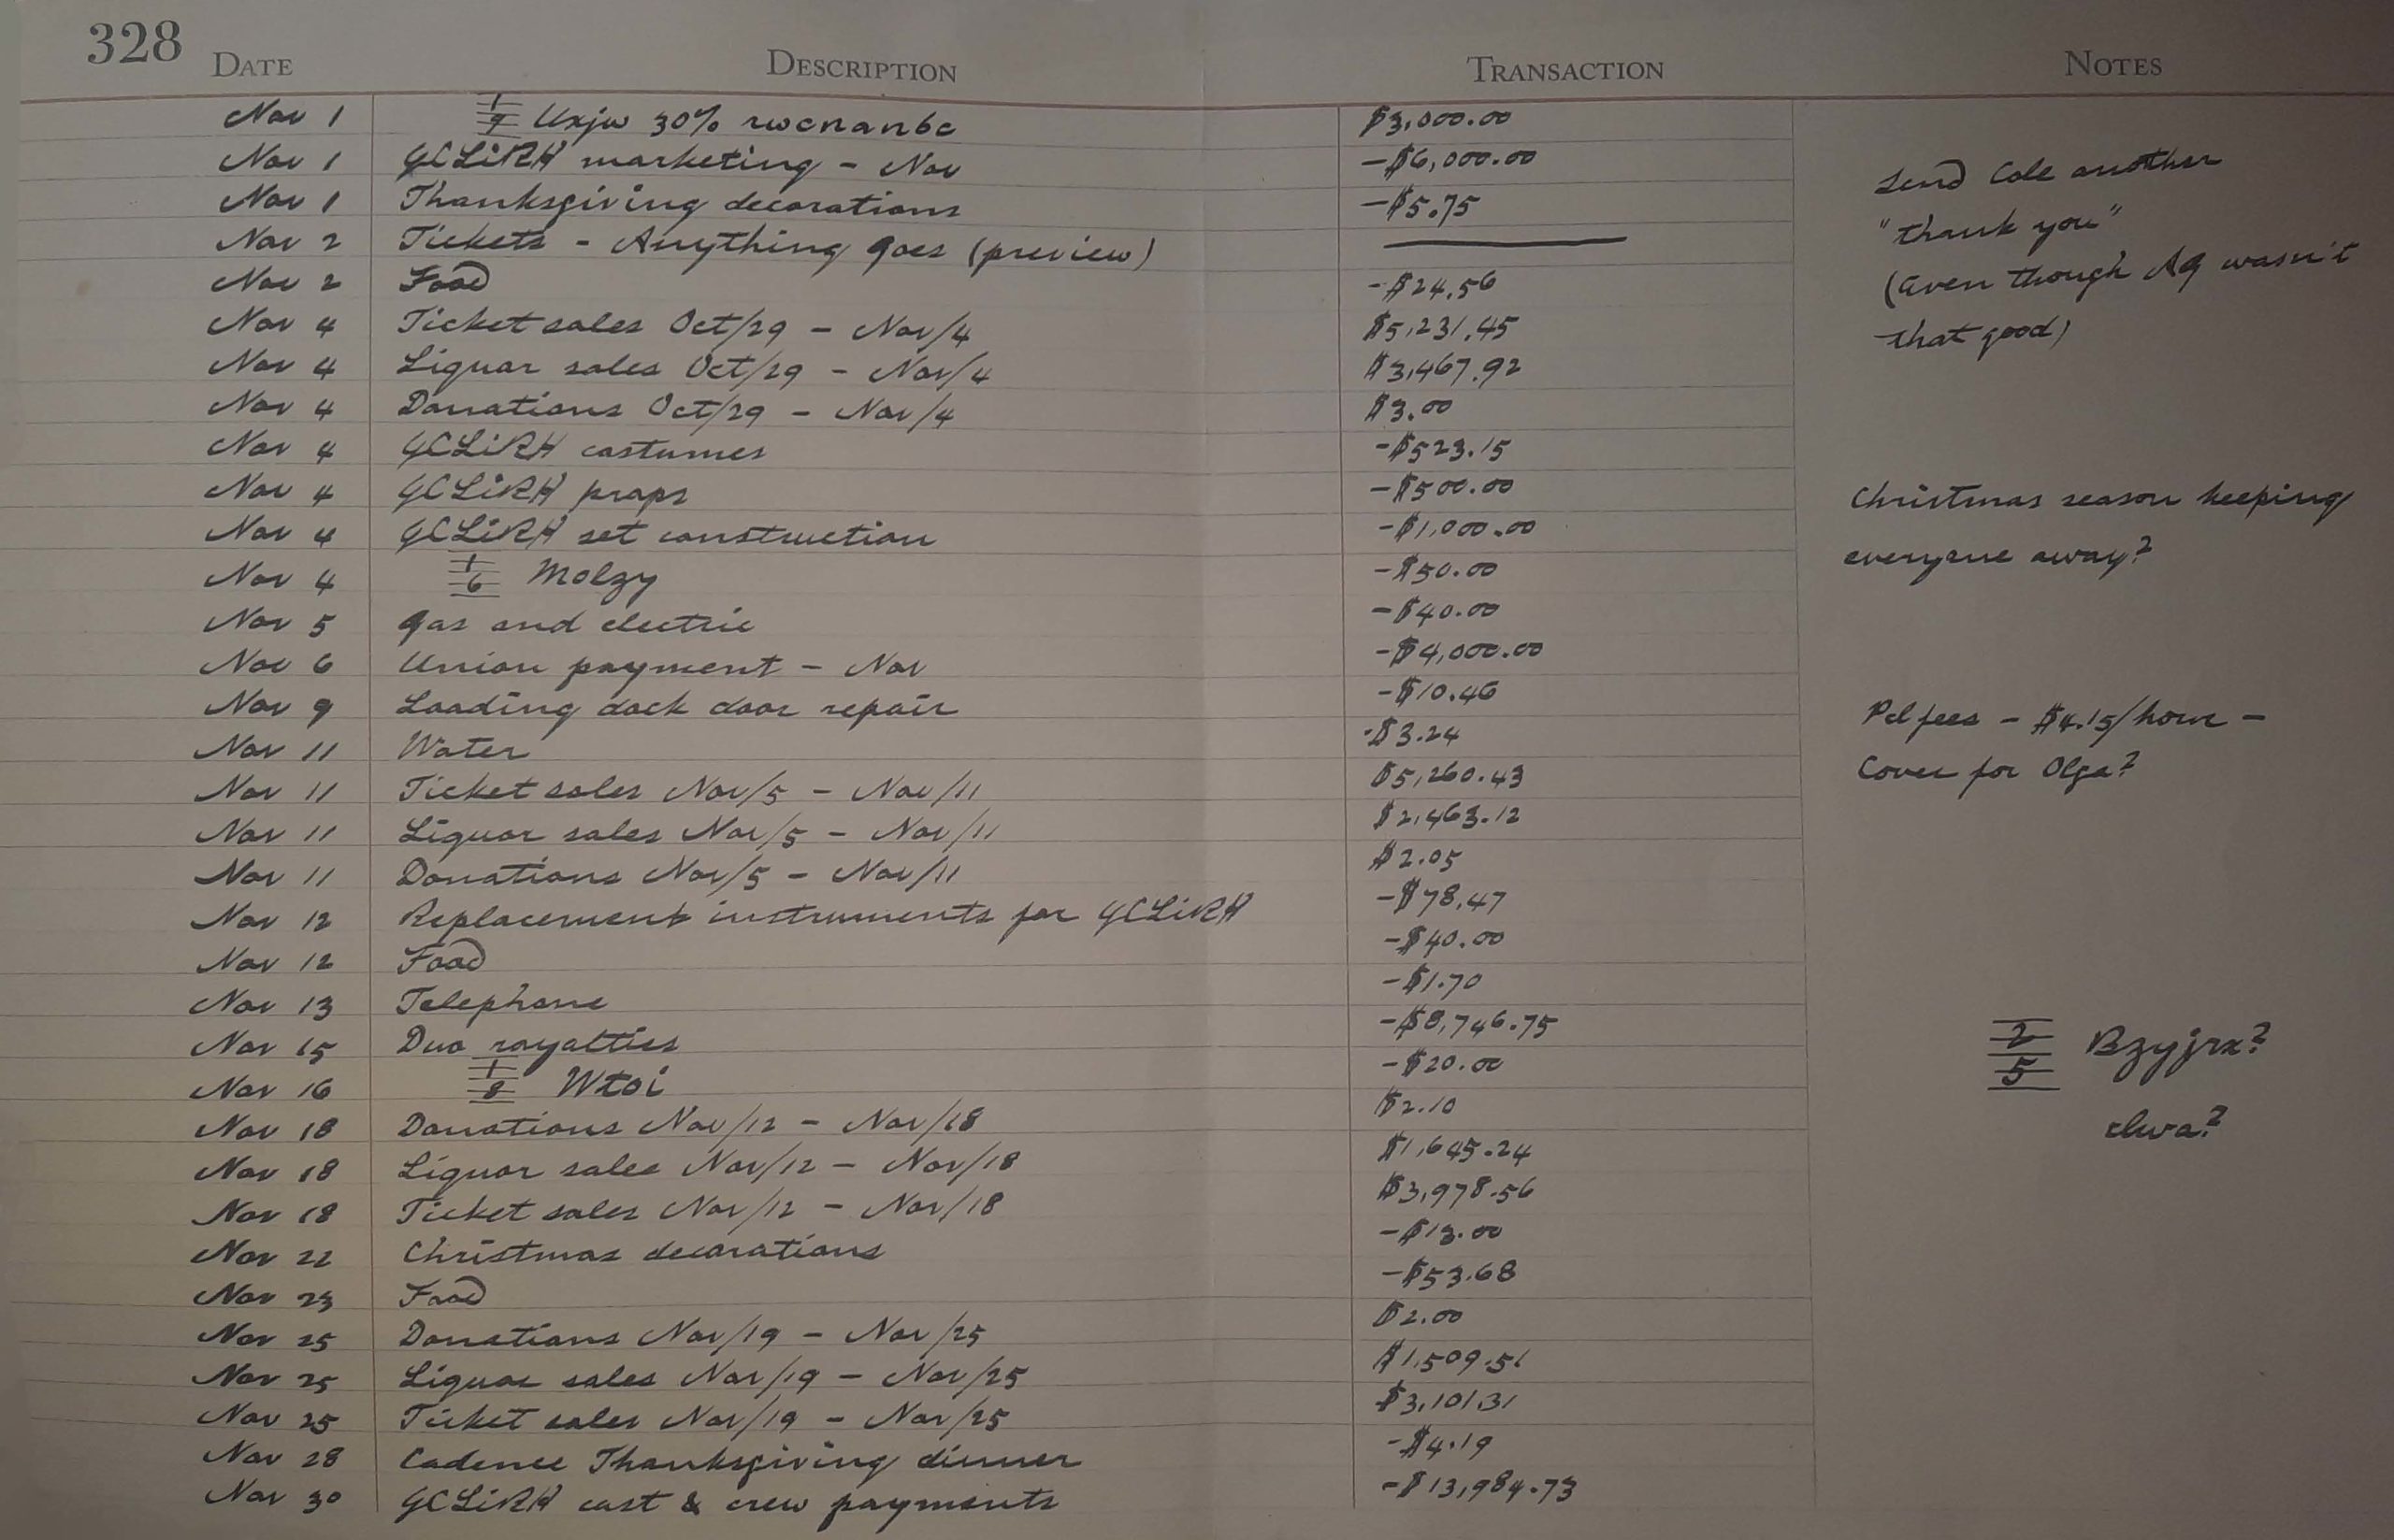 328 DATE DESCRIPTION TRANSACTION NOTES
Nov 1 1/9 Uxjw 30% rwcnanbc $3,000.00
Nov 1 GCLiRH marketing - Nov -$6,000.00
Nov 1 Thanksgiving decorations -$5.75
Nov 2 Tickets - Anything Goes (preview) —
Nov 2 Food -$24.56
Nov 4 Ticket sales Oct/29 - Nov/4 $5,231.45
Nov 4 Liquor sales Oct/29 - Nov/4 $3,467.92
Nov 4 Donations Oct/29 - Nov/4 $3.00
Nov 4 GCLiRH costumes -$523.15
Nov 4 GCLiRH props -$500.00
Nov 4 GCLiRH set construction -$1,000.00
Nov 4 1/6 Molzy -$50.00
Nov 5 Gas and electric -$40.00
Nov 6 Union payment - Nov -$4,000.00
Nov 9 Loading dock door repair -$10.46
Nov 11 Water -$3.24
Nov 11 Ticket sales Nov/5 - Nov/11 $5,260.43
Nov 11 Liquor sales Nov/5 - Nov/11 $2,463.12
Nov 11 Donations Nov/5 - Nov/11 $2.05
Nov 12 Replacement instruments for GCLiRH -$78.47
Nov 12 Food -$40.00
Nov 13 Telephone -$1.70
Nov 15 Duo royalties -$8,746.75
Nov 16 1/8 Wtoi -$20.00
Nov 18 Donations Nov/12 - Nov/18 $2.10
Nov 18 Liquor sales Nov/12 - Nov/18 $1,645.24
Nov 18 Ticket sales Nov/12 - Nov/18 $3,978.56
Nov 22 Christmas decorations -$13.00
Nov 23 Food -$53.68
Nov 25 Donations Nov/19 - Nov/25 $2.00
Nov 25 Liquor sales Nov/19 - Nov/25 $1,509.51
Nov 25 Ticket sales Nov/19 - Nov/25 $3,101.31
Nov 28 Cadence Thanksgiving dinner -$4.19
Nov 30 GCLiRH cast & crew payments -$13,984.73
Send Cole another
"thank you"
(even though AG wasn't
that good)
Christmas season keeping
everyone away?
Pel fees - $4.15/hour -
Cover for Olga?
2/5 Bzyjrx?
clwa?